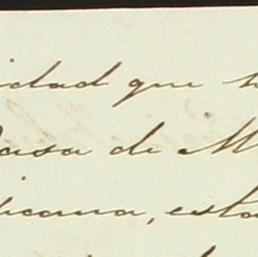 idad que
Casa de M
icana, esta